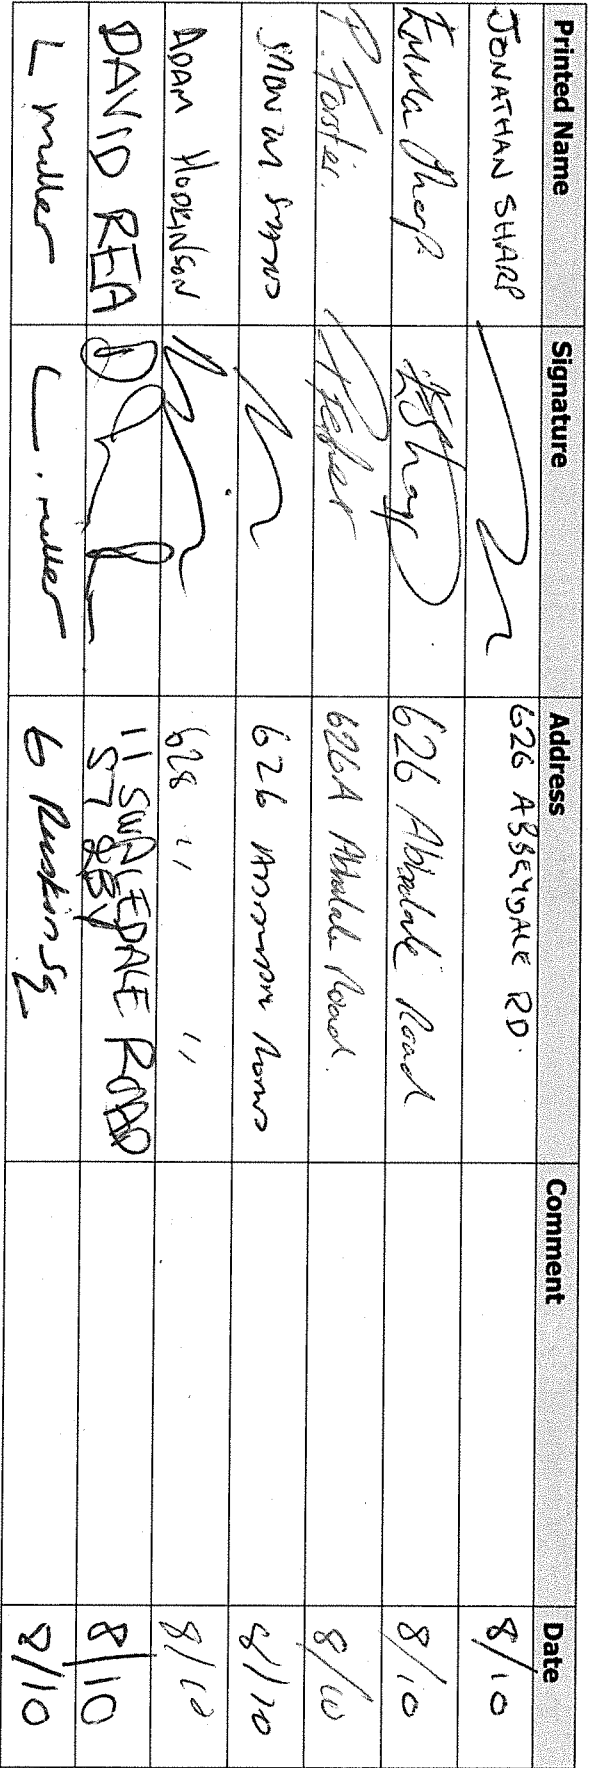 Printed Name Signature Address Comment Date
JONATHAN SHARP 626 ABBEYDALE RD. 8/10
Emma Sharp ESharp 626 Abbeydale Road 8/10
P. Forster. 626A Road. 8/10
626 8/10
ADAM HODKINSON 628 " " 8/10
DAVID REA 11 SWALEDALE ROAD 8/10
S7 2BY
L Muller L. muller 6 Ruskin Sq 8/10